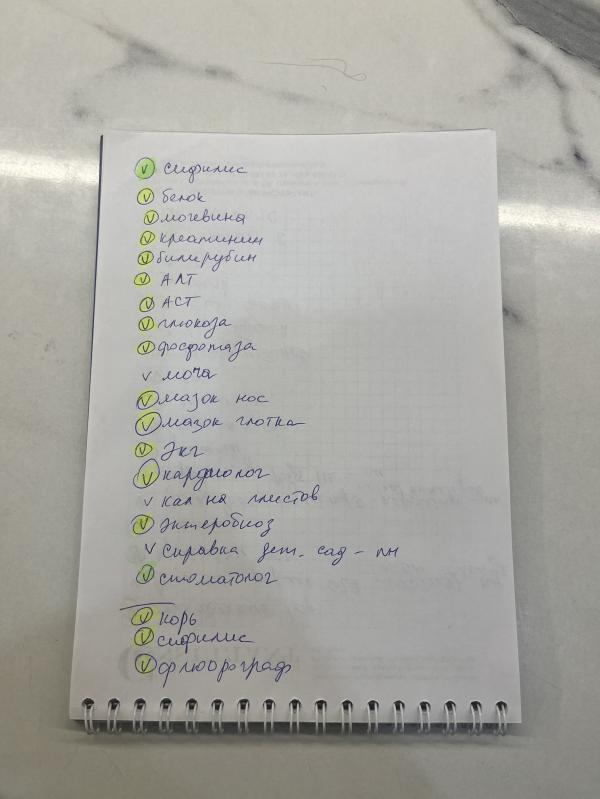 ✓ сифилис
✓ белок
✓ мочевина
✓ креатинин
✓ билирубин
✓ АЛТ
✓ АСТ
✓ глюкоза
✓ фосфотаза
✓ моча
✓ мазок нос
✓ мазок глотка
✓ Экг
✓ кардиолог
✓ кал на глистов
✓ Энтеробиоз
✓ Справка дет. сад - пн
✓ стоматолог
✓ корь
✓ сифилис
✓ флюорограф